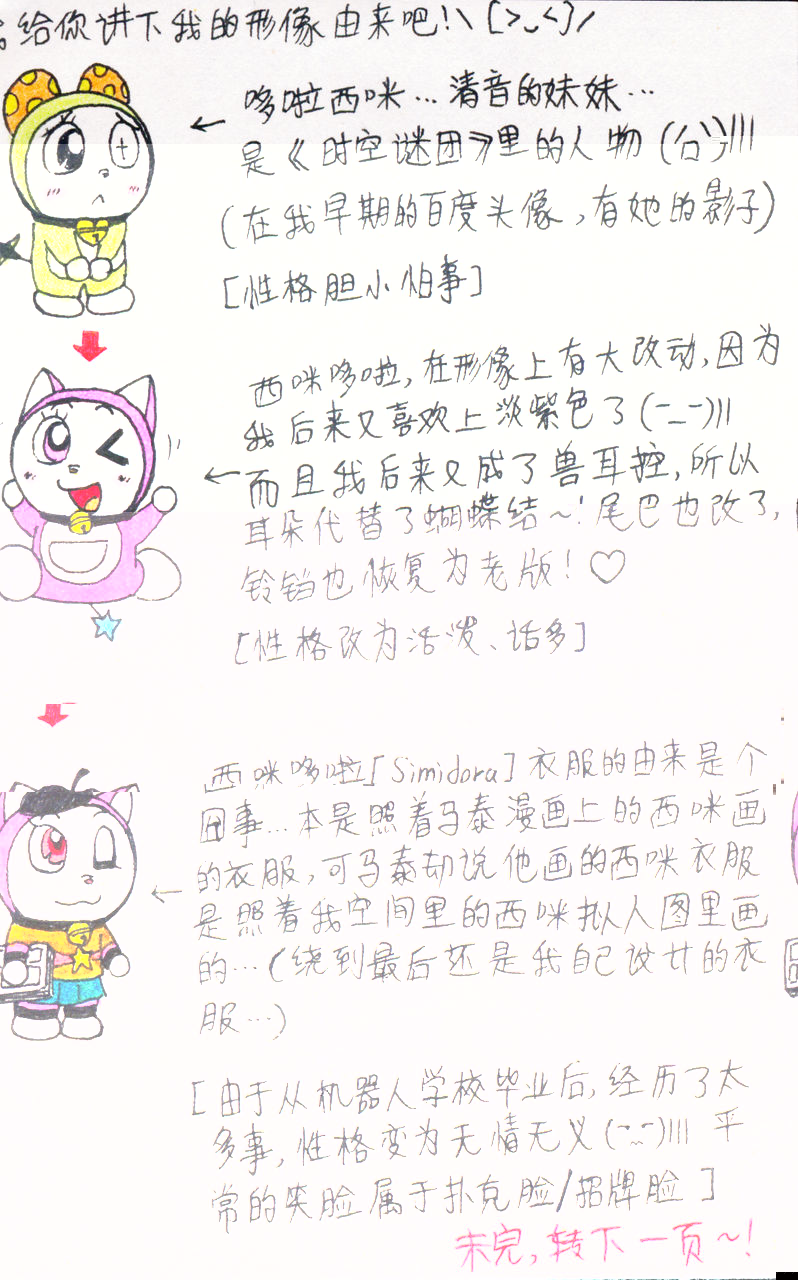 给你讲下我的形像由来吧!\[>_<]/
哆啦西咪…清音的妹妹…
是《时空谜团》里的人物
(在我早期的百度头像,有她的影子)
[性格胆小怕事]
西咪哆啦,在形像上有大改动,因为
我后来又喜欢上淡紫色了(-_-)|||
而且我后来又成了兽耳控,所以
耳朵代替了蝴蝶结~!尾巴也改了,
铃铛也恢复为老版!♡
[性格改为活泼、话多]
西咪哆啦[Simidora]衣服的由来是个
囧事…本是照着马泰漫画上的西咪画
的衣服,可马泰却说他画的西咪衣服
是照着我空间里的西咪拟人图里画
的…(绕到最后还是我自己设计的衣
服…)
[由于从机器人学校毕业后,经历了太
多事,性格变为无情无义(-_-)||| 平
常的笑脸属于扑克脸/招牌脸]
未完,转下一页~!